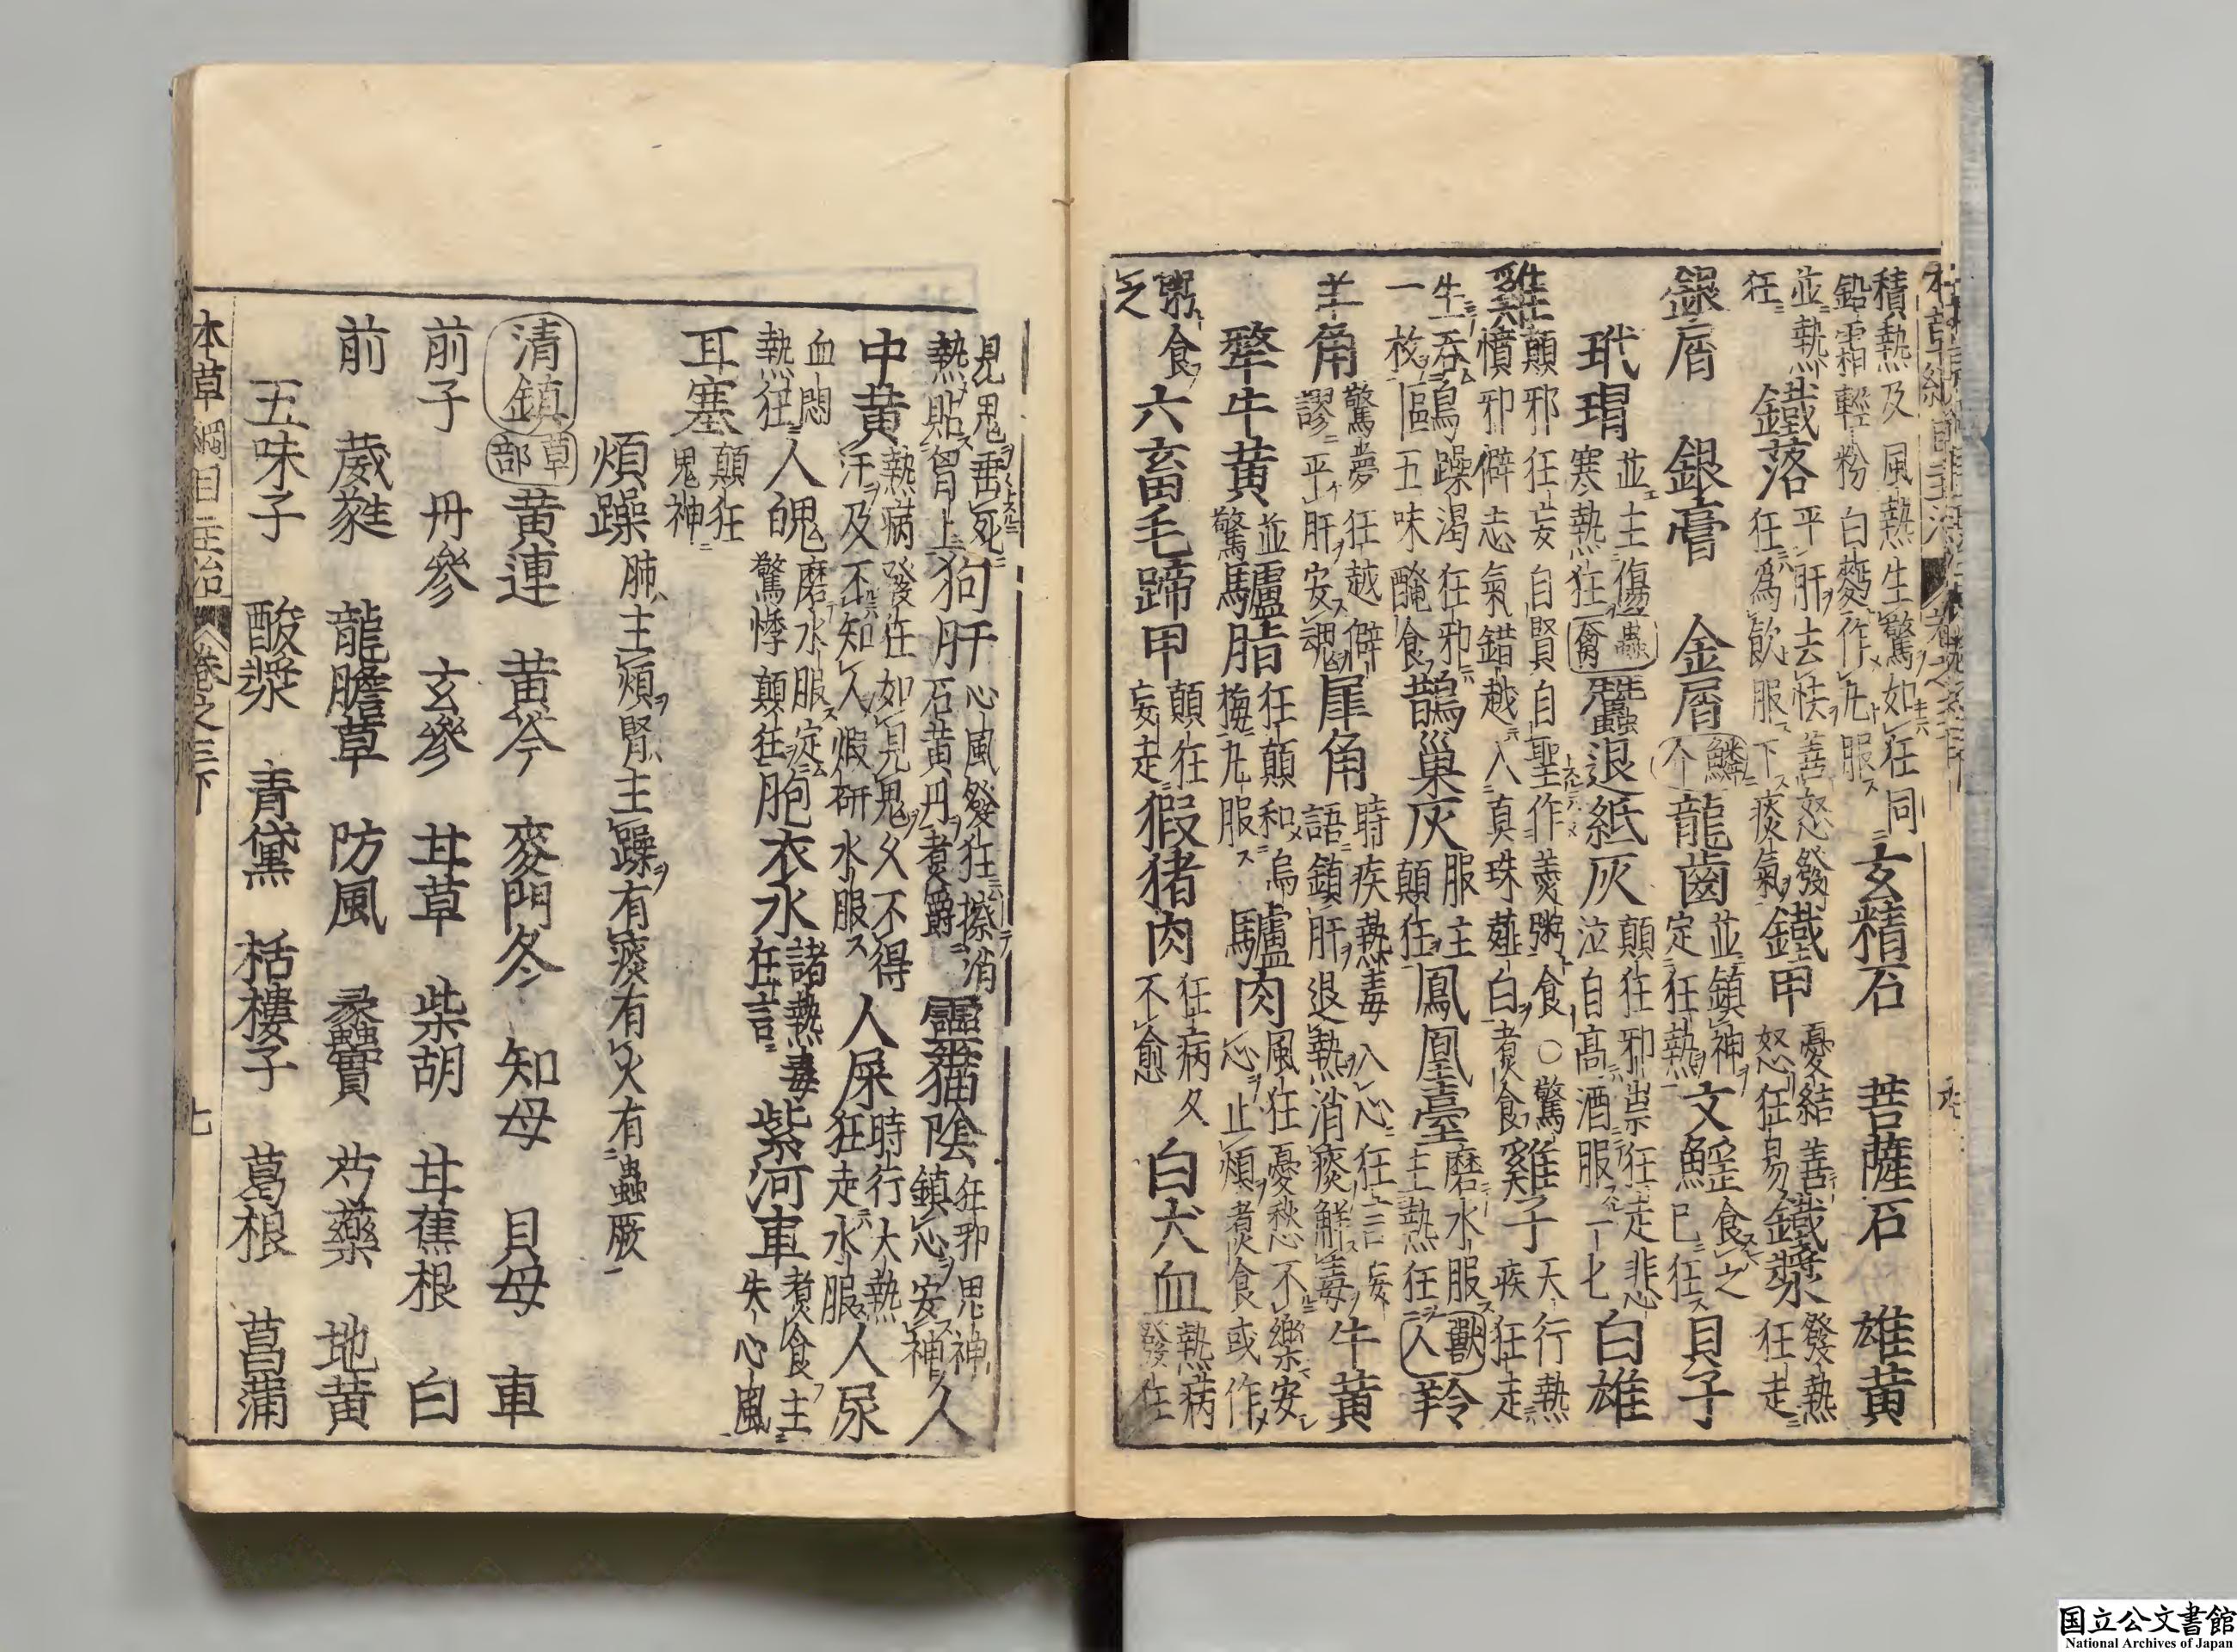 積熱及風熱生驚如狂同
鉛霜輕粉白礬作丸服
玄精石 菩薩石 雄黃
並熱
狂
鐵落
平肝去怯善怒發
狂爲飲服下痰氣
鐵甲
憂結善
怒狂易
鐵漿
發熱
狂走
銀屑 銀膏 金屑
鱗
介
龍齒
並鎮神
定狂熱
文鰩
食之
已狂
貝子
玳瑁
並主傷
寒熱狂
蟲
禽
蠶退紙灰
顛狂邪祟狂走悲
泣自高酒服一匕
白雄
雞
顛邪狂妄自賢自聖作羹粥食○驚
憤邪僻志氣錯越入真珠薤白煮食
雞子
天行熱
疾狂走
生吞
一枚
躁渴狂邪
五味醃食
鵲巢灰
服主
顛狂
鳳凰臺
磨水服
主熱狂
獸
人
羚
羊角
驚夢狂越僻
謬平肝安魂
犀角
時疾熱毒入心狂言妄
語鎮肝退熱消痰解毒
牛黃
犛牛黃
並
驚
驢脂
狂顛和烏
梅丸服
驢肉
風狂憂愁不樂安
心止煩煮食或作
粥食
之
六畜毛蹄甲
顛狂
妄走
豭猪肉
狂病久
不愈
白犬血
熱病
發狂
見鬼垂死
熱貼胷上
狗肝
心風發狂擦消
石黃丹煮嚼
靈猫陰
狂邪鬼神
鎮心安神
人
中黃
熱病發狂如見鬼久不得
汗及不知人煆研水服
人屎
時行大熱
狂走水服
人尿
血悶
熱狂
人魄
磨水服定
驚悸顛狂
胞衣水
諸熱毒
狂言
紫河車
煮食主
失心風
耳塞
顛狂
鬼神
煩躁 肺主煩腎主躁有痰有火有蟲厥
清鎮
草
部
黃連 黃芩 麥門冬 知母 貝母 車
前子 丹參 玄參 甘草 柴胡 甘蕉根 白
前 葳蕤 龍膽草 防風 蠡實 芍藥 地黃
五味子 酸漿 青黛 栝樓子 葛根 菖蒲
本草綱目主治 卷之三下 七
国立公文書館
National Archives of Japan